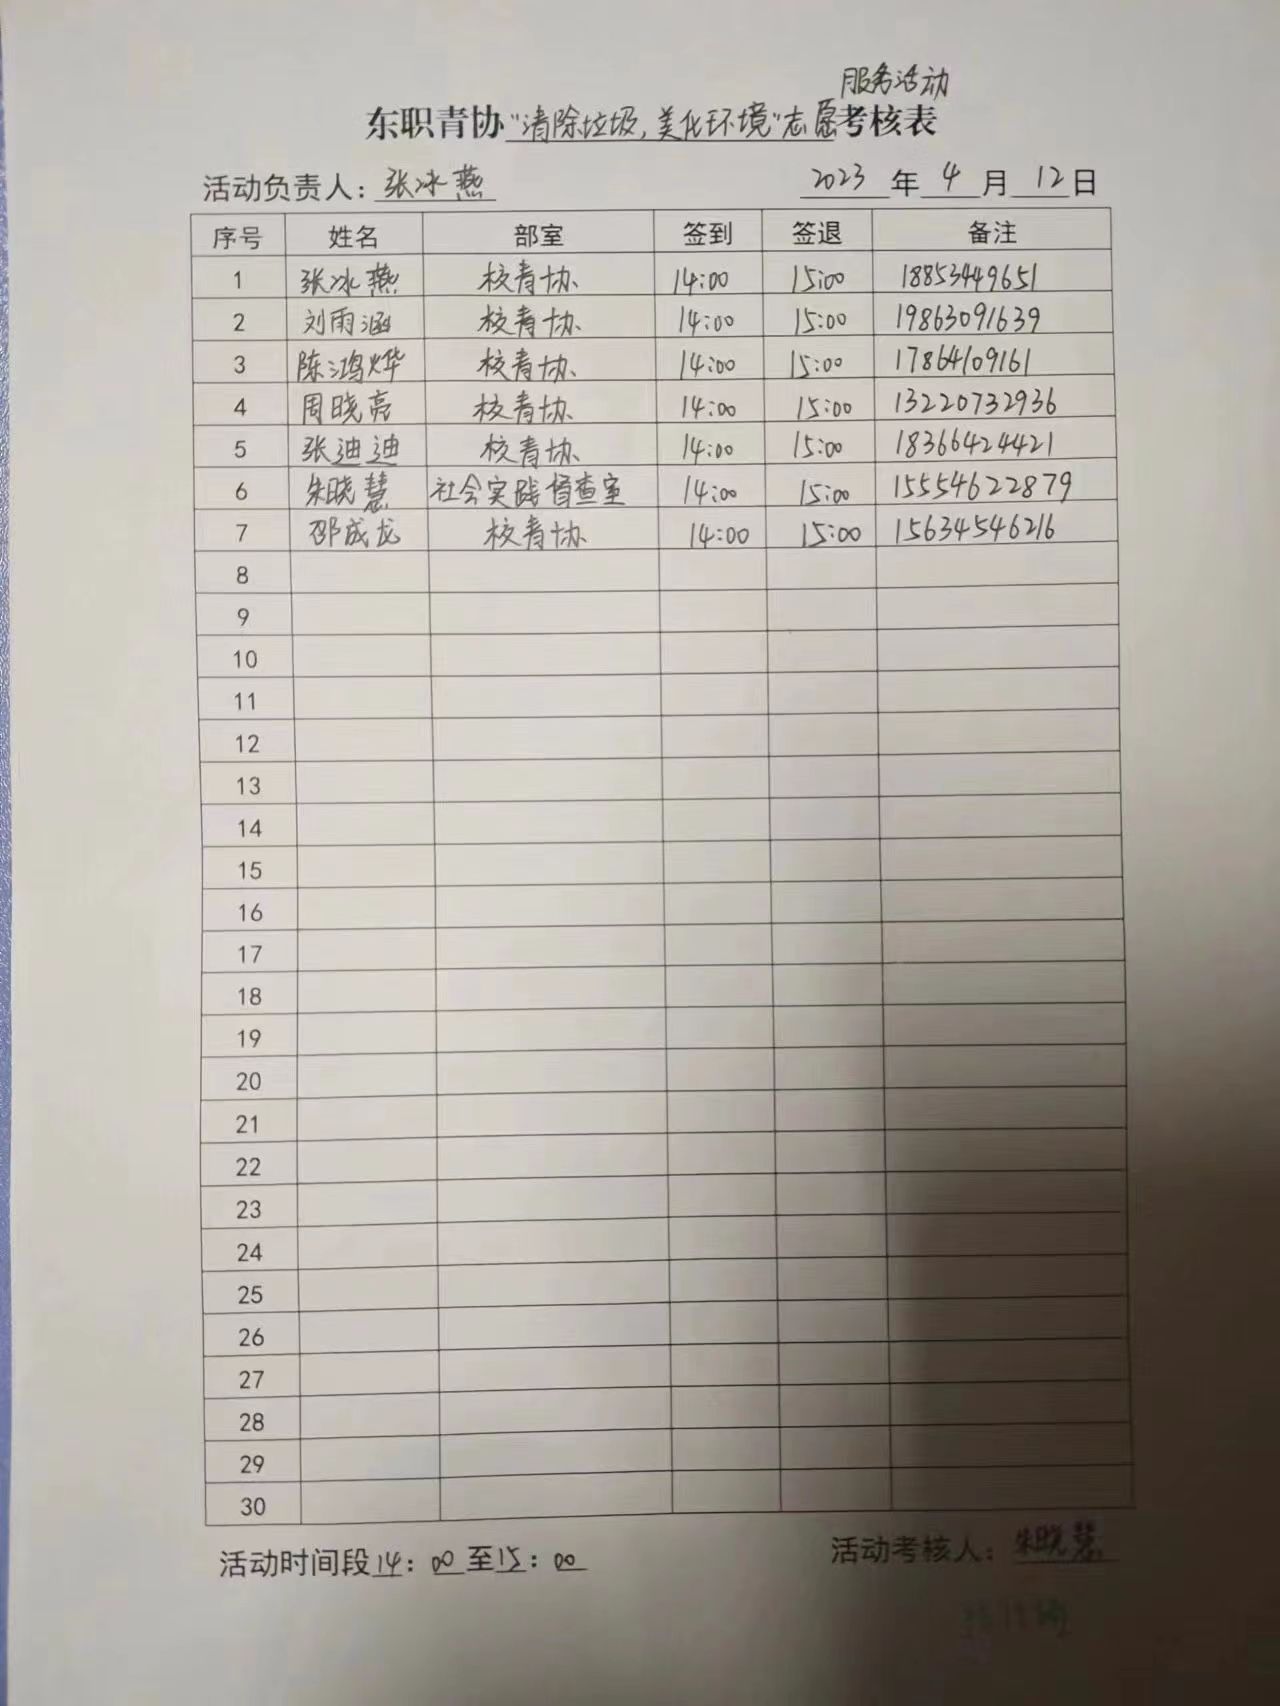 服务活动
东职青协"清除垃圾,美化环境"志愿考核表
活动负责人:张冰燕 2023年4月12日
序号 姓名 部室 签到 签退 备注
1 张冰燕 校青协 14:00 15:00 18853449651
2 刘雨涵 校青协 14:00 15:00 19863091639
3 陈鸿烨 校青协 14:00 15:00 17864109161
4 周晓亮 校青协 14:00 15:00 13220732936
5 张迪迪 校青协 14:00 15:00 18366424421
6 朱晓慧 社会实践督查室 14:00 15:00 15554622879
7 邵成龙 校青协 14:00 15:00 15634546216
8
9
10
11
12
13
14
15
16
17
18
19
20
21
22
23
24
25
26
27
28
29
30
活动时间段14:00至15:00 活动考核人:朱晓慧